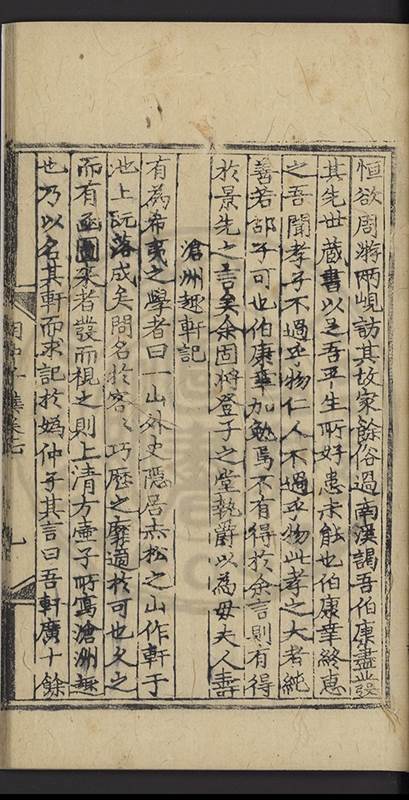 恒欲周游兩峴訪其故家餘俗過南漢謁吾伯康盡發
其先世蔵書以足吾平生所好患未能也伯康幸終惠
之吾聞孝子不過乎物仁人不過乎物此孝之大者純
善若部子可也伯康華加勉焉不有得於余言則有得
於景先之言矣余固將登子之堂執爵以為母夫人壽
滄洲趣軒記
有為希夷之學者曰一山外史隱居赤松之山作軒于
池上既落成矣問名於客巧歷之靡適於可也久之
而有函圖來者發而視之則上清方壷子所寫滄洲趣
也乃以名其軒而求記於媯仲子其言曰吾軒廣十餘